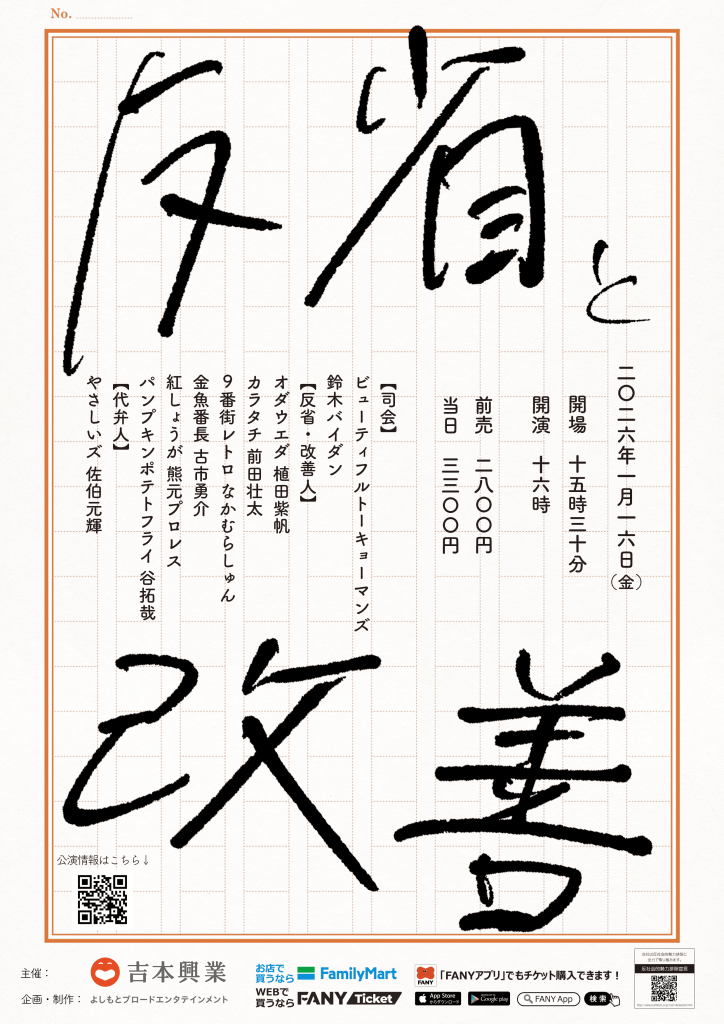 No.
反省と
改善
二〇二六年一月一六日（金）
開場　十五時三十分
開演　十六時
前売　二八〇〇円
当日　三三〇〇円
【司会】
ビューティフルトーキョーマンズ
鈴木バイダン
【反省・改善人】
オダウエダ 植田紫帆
カラタチ 前田壮太
9番街レトロ なかむらしゅん
金魚番長 古市勇介
紅しょうが 熊元プロレス
パンプキンポテトフライ 谷拓哉
【代弁人】
やさしいズ 佐伯元輝
公演情報はこちら↓
主催：
吉本興業
企画・制作：
よしもとブロードエンタテインメント
お店で
買うなら
FamilyMart
WEBで
買うなら
FANY Ticket
FANY
「FANYアプリ」でもチケット購入できます！
App Store
からダウンロード
Google play
FANY App
検索
反社会的勢力排除宣言